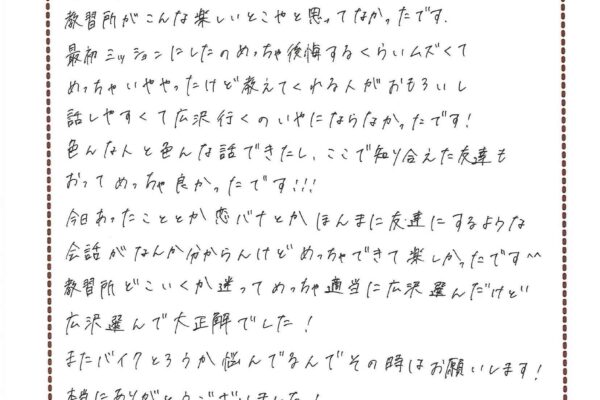 教習所がこんな楽しいとこやと思ってなかったです.
最初ミッションにしたのめっちゃ後悔するくらいムズくて
めっちゃいややったけど教えてくれる人がおもろいし
話しやすくて広沢行くのいやにならなかったです!
色んな人と色んな話できたし、ここで知り合えた友達も
おってめっちゃ良かったです!!!
今日あったこととか恋バナとかほんまに友達にするような
会話がなんか分からんけどめっちゃできて楽しかったです^^
教習所どこいくか迷ってめっちゃ適当に広沢選んだけど
広沢選んで大正解でした!
またバイクとろうか悩んでるんでその時はお願いします!
本当にありがとうございました!